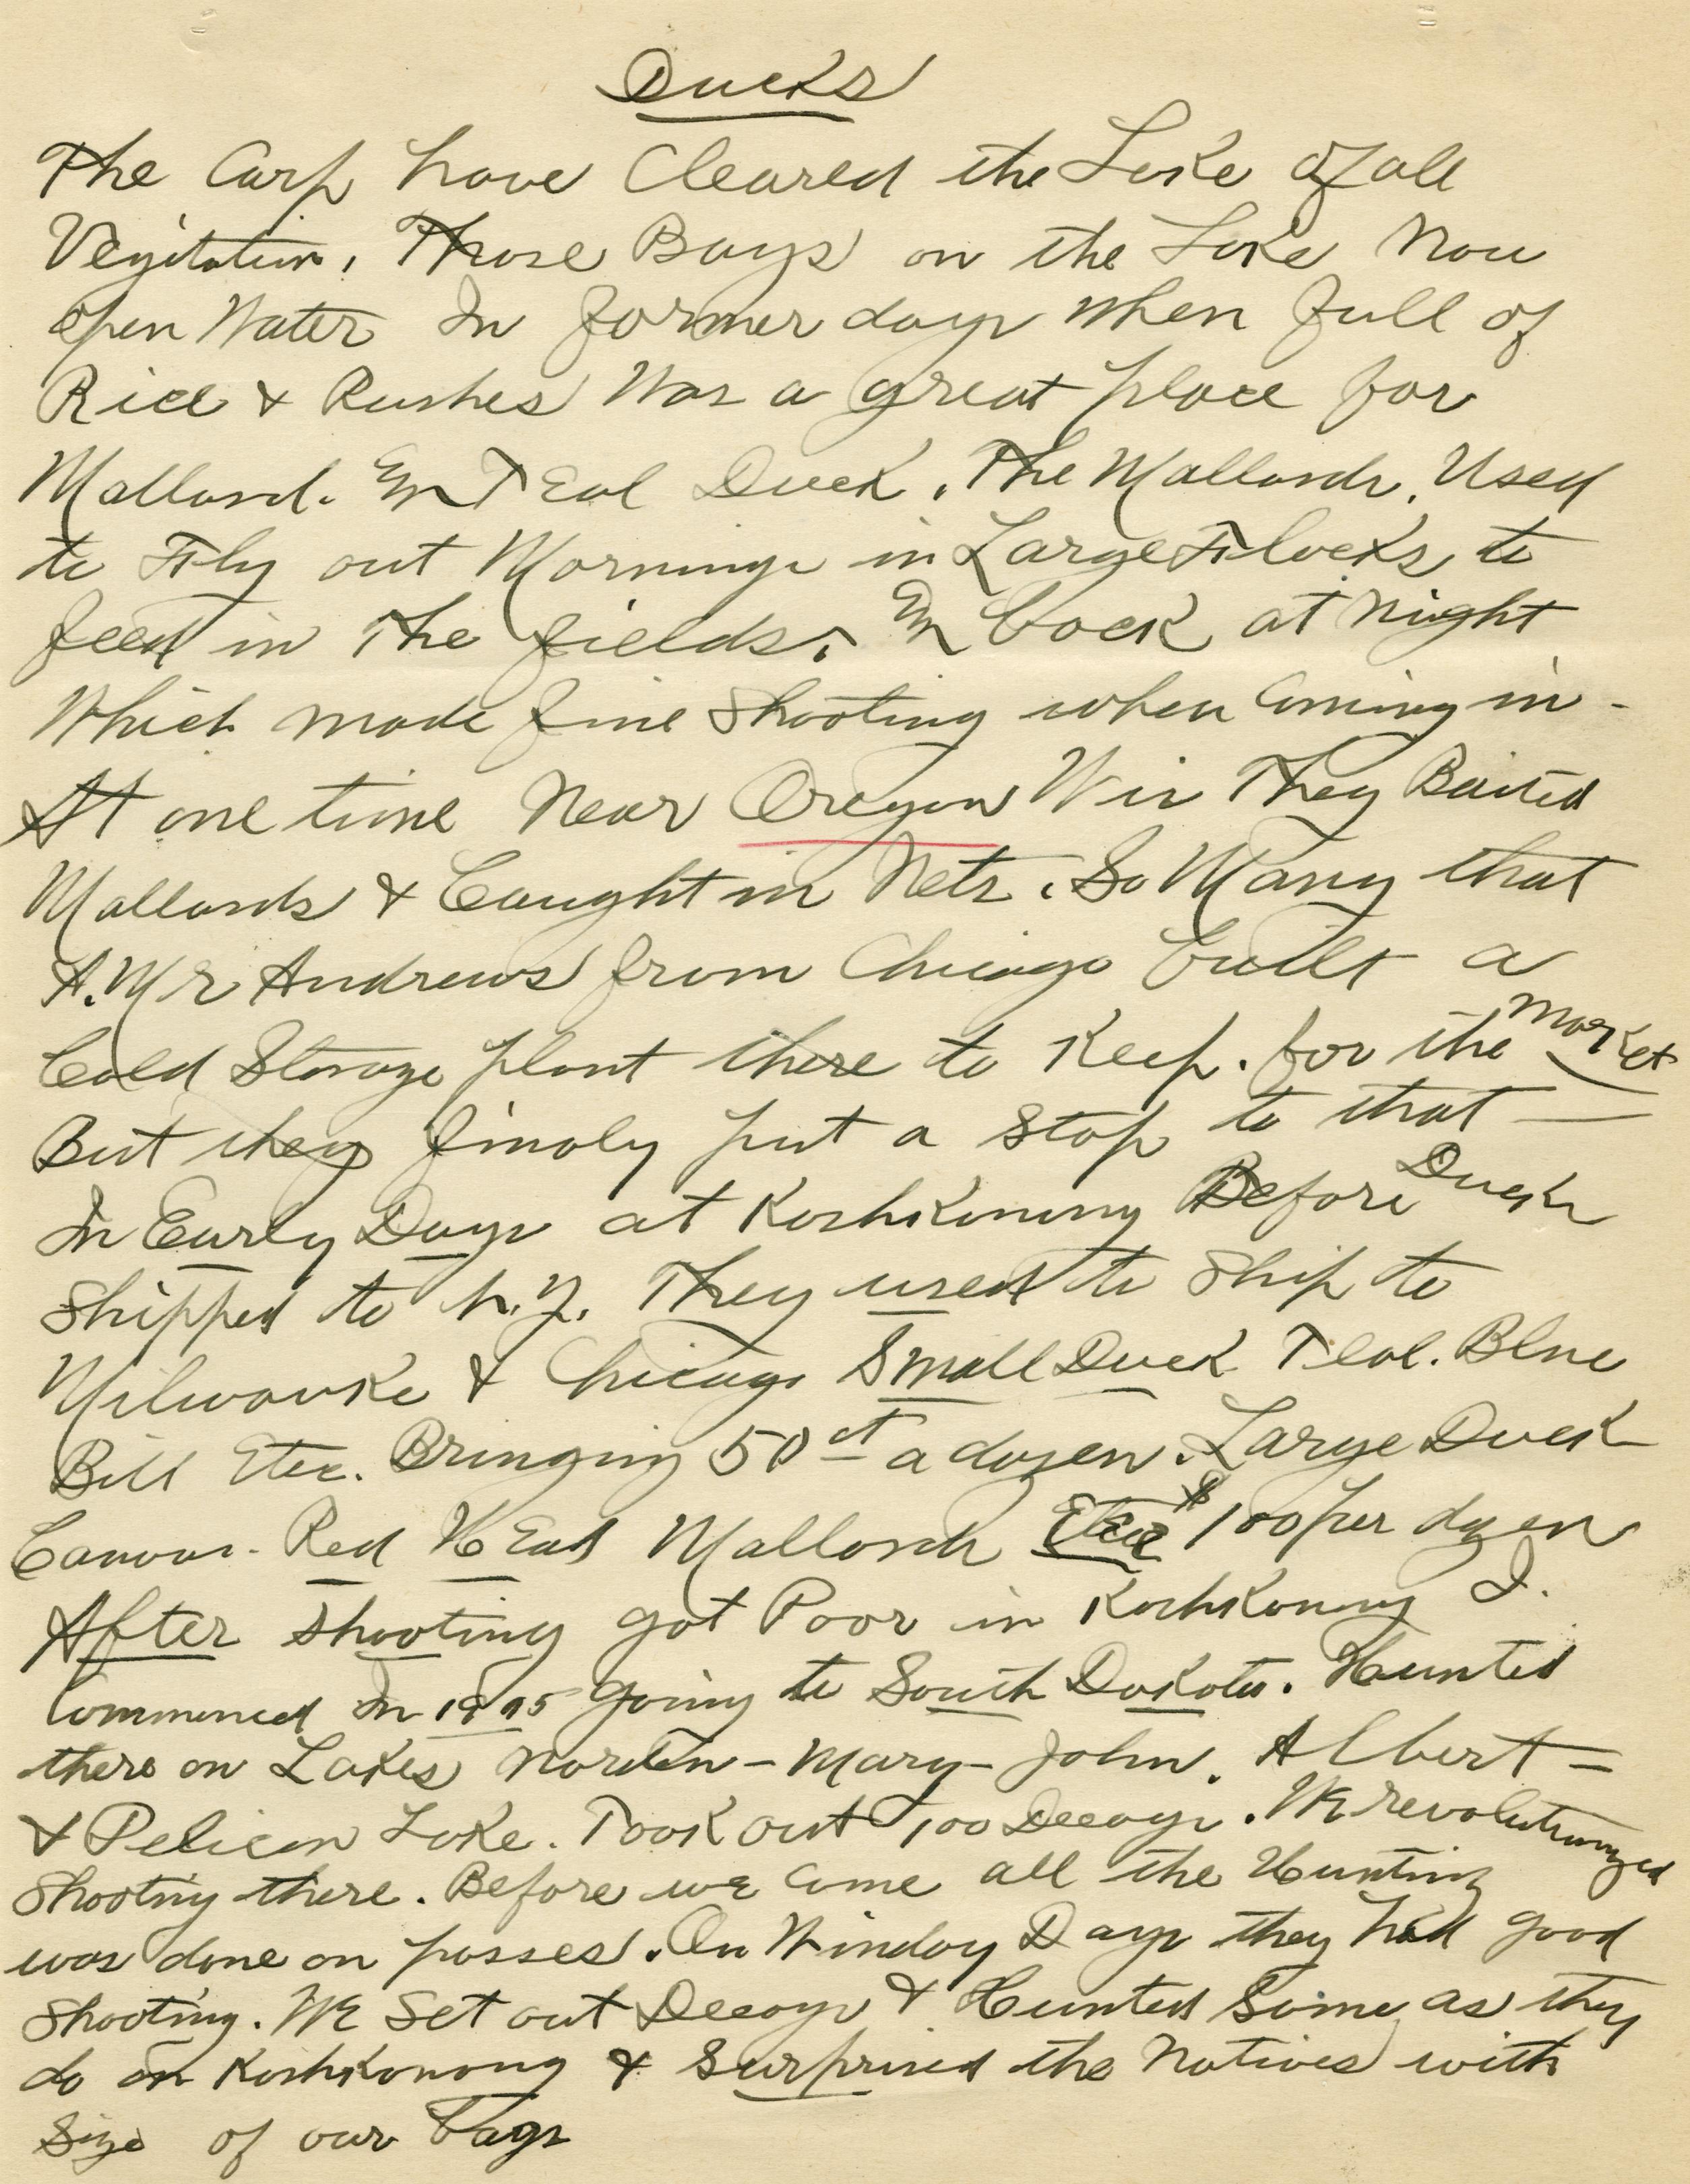 Ducks
The Carp have Cleared the Lake of all
Vegitation, Those Bays on the Lake Now
open Water In former days when full of
Rice & Rushes Was a great place for
Mallard. En Teal Duck, The Mallards, Used
to Fly out Mornings in Large Flocks, to
feed in The fields, En back at Night
Which made fine shooting when Coming in -
At one time Near Oregon Wis They Baited
Mallards & Caught in Nets. So Many that
A. Mr Andrews from Chicago built a
Cold Storage plant there to Keep. for the Market
But they finaly put a stop to that —
In Early Days at Koshkonong Before Ducks
Shipped to N.Y. They used to Ship to
Milwauke & Chicago Small Duck Teal. Blue
Bill Etc. Bringing 50 ct a dozen. Large Duck
Canvas- Red Head Mallards Etc $100 per dozen
After shooting got Poor in Koshkonong I.
Commenced In 1895 going to South Dakota. Hunted
there on Lakes Norden - Mary - John. Albert =
& Pelican Lake. Took out 100 Decoys. We revolutionized
Shooting there. Before we Came all the Hunting
was done on passes. On Winday Days they had good
Shooting. We Set out Decoys & Hunted Same as they
do on Koshkonong & Surprised the Natives with
Size of our bags